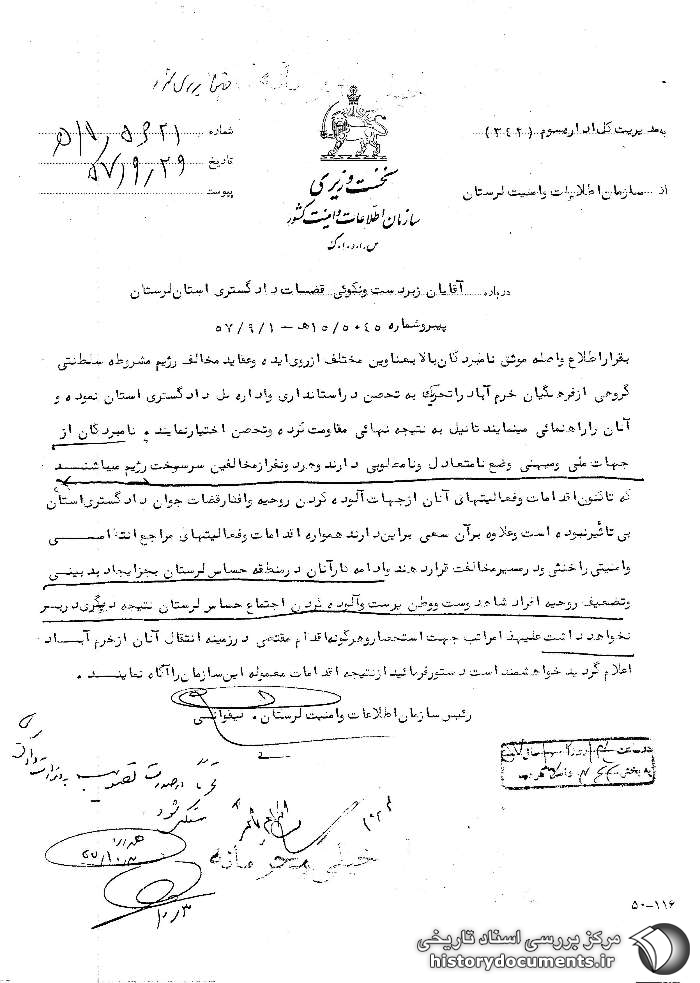 خیلی محرمانه
به مدیریت کل اداره سوم (۳۴۲)
از سازمان اطلاعات و امنیت لرستان
نخست وزیری
سازمان اطلاعات و امنیت کشور
س.ا.و.ا.ک
شماره
تاریخ ۵۷/۹/۲۹
پیوست
درباره آقایان زبردست ونکوئی قضات دادگستری استان لرستان
پیروشماره ۱۵/۵۰۴۵ه‍ – ۵۷/۹/۱
بقراراطلاع واصله موثق نامبردگان بالا بعناوین مختلف ازروی ایده وعقاید مخالف رژیم مشروطه سلطنتی
گروهی ازفرهنگیان خرم آباد راتحریک به تحصن دراستانداری واداره کل دادگستری استان نموده و
آنان راراهنمائی مینمایند تانیل به نتیجه نهائی مقاومت کرده وتحصن اختیارنمایند . نامبردگان از
جهات ملی ومیهنی وضع نامتعادل ونامطلوبی دارند وجزو نفرازمخالفین سرسخت رژیم میباشند
که تاکنون اقدامات وفعالیتهای آنان ازجهات آلوده کردن روحیه وافکارقضات جوان دادگستری استان
بی تأثیرنبوده است وعلاوه برآن سعی براین دارند همواره اقدامات وفعالیتهای مراجع انتظامی
وامنیتی راخنثی ودرمسیرمخالفت قراردهند وادامه کارآنان درمنطقه حساس لرستان بجزایجاد بدبینی
وتضعیف روحیه افراد شاهدوست ووطن پرست وآلوده کردن اجتماع حساس لرستان نتیجه دیگری دربر
نخواهد داشت علیهذا مراتب جهت استحضاروهرگونه اقدام مقتضی درزمینه انتقال آنان ازخرم آباد
اعلام گردید خواهشمند است دستورفرمائید ازنتیجه اقدامات معموله این سازمان راآگاه نمایند .
رئیس سازمان اطلاعات وامنیت لرستان .
در صورت تصویب به وزارت دادگستری
منعکس شود
۱۰/۳
خیلی محرمانه
۵۰-۱۱۶
مرکز بررسی اسناد تاریخی
historydocuments.ir